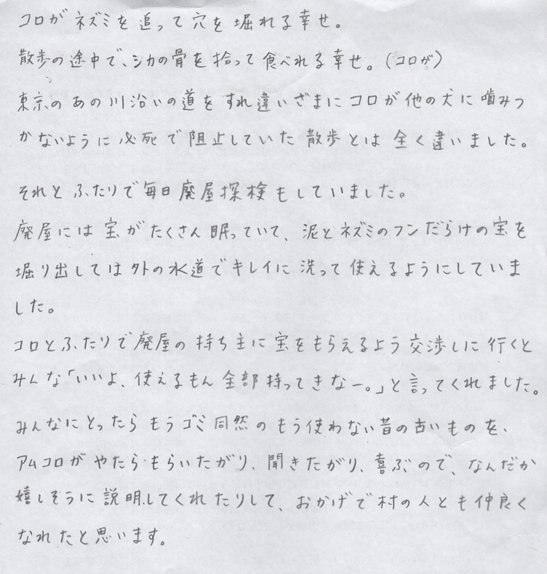 コロがネズミを追って穴を掘れる幸せ。
散歩の途中で、シカの骨を拾って食べれる幸せ。(コロが)
東京のあの川沿いの道をすれ違いざまにコロが他の犬に噛みつ
かないように必死で阻止していた散歩とは全く違いました。
それとふたりで毎日廃屋探検もしていました。
廃屋には宝がたくさん眠っていて、泥とネズミのフンだらけの宝を
掘り出しては外の水道でキレイに洗って使えるようにしていま
した。
コロとふたりで廃屋の持ち主に宝をもらえるよう交渉しに行くと
みんな「いいよ、使えるもん全部持ってきなー。」と言ってくれました。
みんなにとったらもうゴミ同然のもう使わない昔の古いものを、
アムコロがやたらもらいたがり、聞きたがり、喜ぶので、なんだか
嬉しそうに説明してくれたりして、おかげで村の人とも仲良く
なれたと思います。